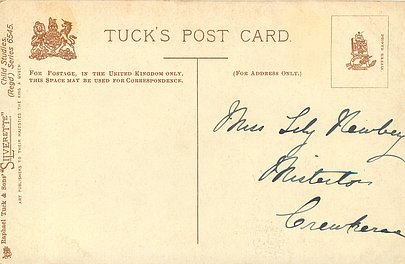 TUCK'S POST CARD.
FOR POSTAGE, IN THE UNITED KINGDOM ONLY,
THIS SPACE MAY BE USED FOR CORRESPONDENCE.
(FOR ADDRESS ONLY.)
Miss Lily Newbey
Misterton
Crewkerne
Raphael Tuck & Sons' "SILVERETTE"
ART PUBLISHERS TO THEIR MAJESTIES THE KING & QUEEN.
Child Studies.
(Regd.) Series 6545.